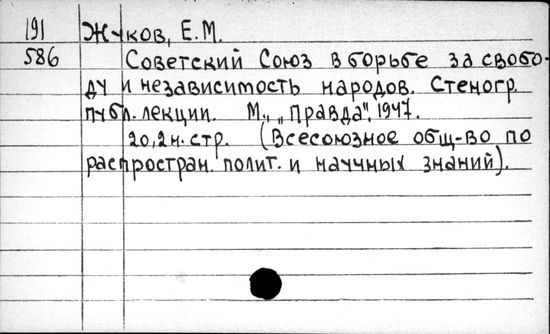 191 Жуков, Е.М.
586 Советский Союз в борьбе за свобо-
ду и независимость народов. Стеногр.
публ. лекции. М., „Правда", 1947.
20,2 н. стр. (Всесоюзное общ-во по
распростран. полит. и научных знаний).